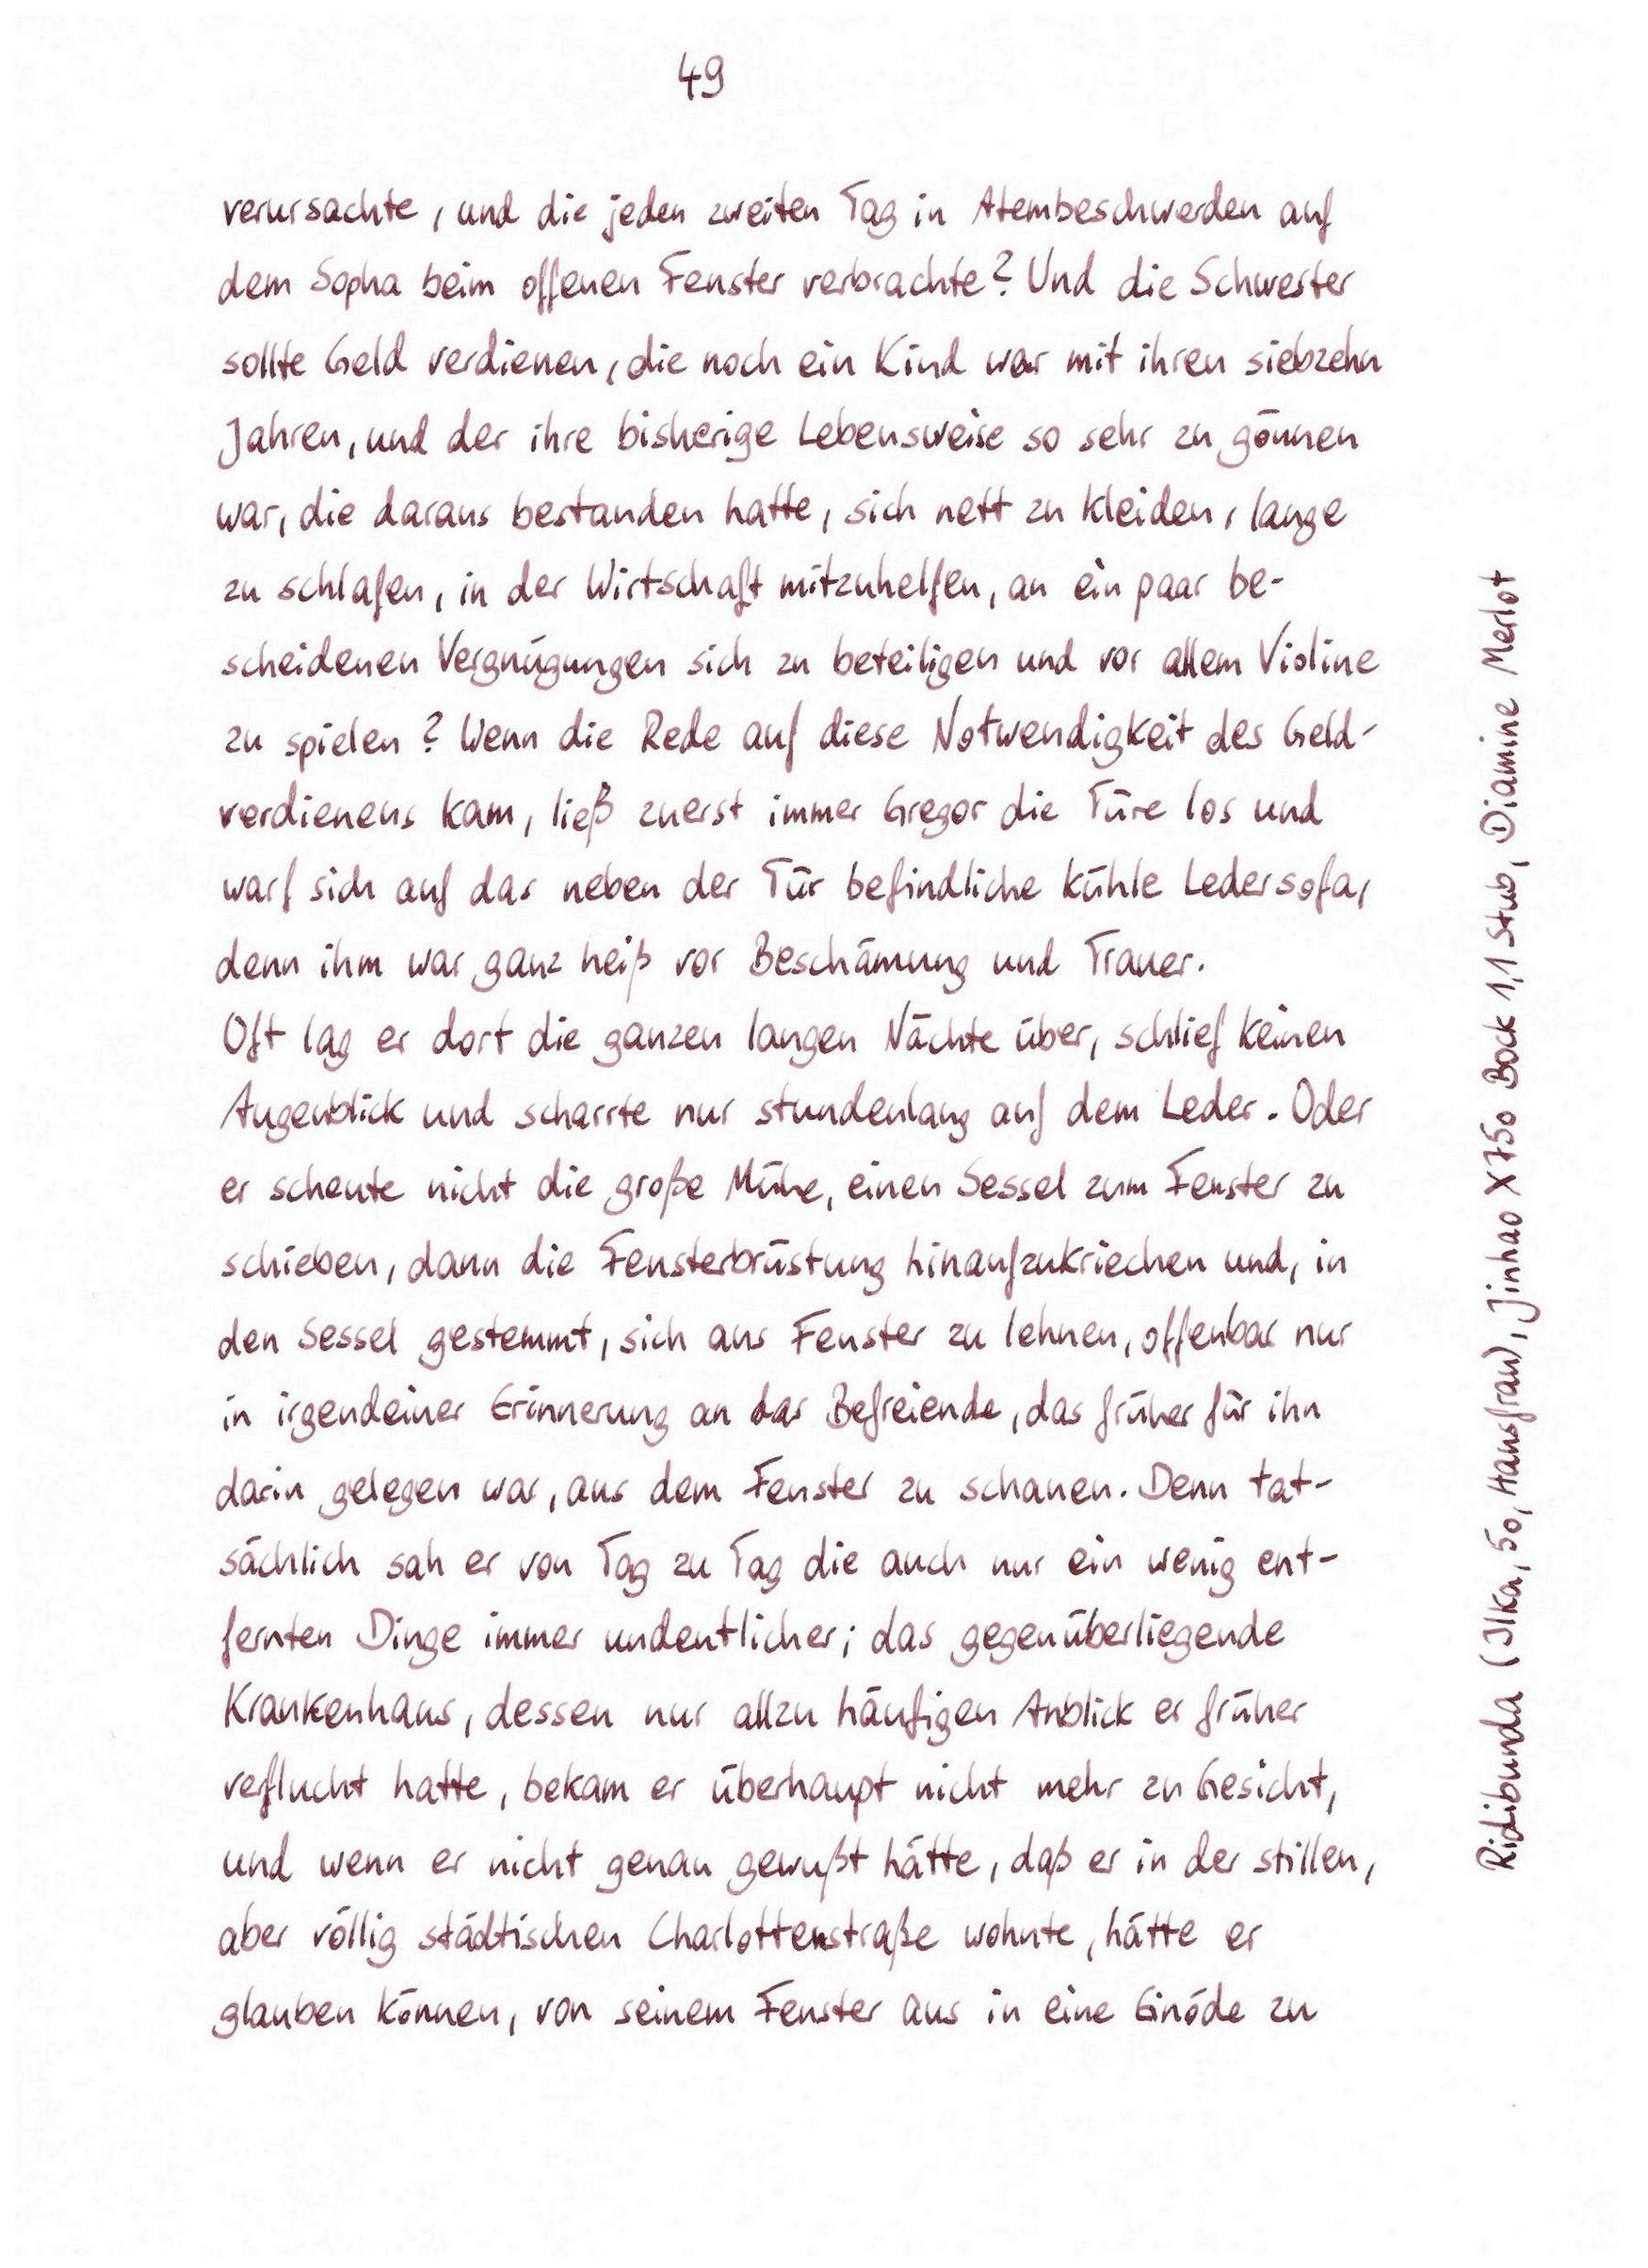 49
verursachte, und die jeden zweiten Tag in Atembeschwerden auf
dem Sopha beim offenen Fenster verbrachte? Und die Schwester
sollte Geld verdienen, die noch ein Kind war mit ihren siebzehn
Jahren, und der ihre bisherige Lebensweise so sehr zu gönnen
war, die daraus bestanden hatte, sich nett zu kleiden, lange
zu schlafen, in der Wirtschaft mitzuhelfen, an ein paar be-
scheidenen Vergnügungen sich zu beteiligen und vor allem Violine
zu spielen? Wenn die Rede auf diese Notwendigkeit des Geld-
verdienens kam, ließ zuerst immer Gregor die Türe los und
warf sich auf das neben der Tür befindliche kühle Ledersofa,
denn ihm war ganz heiß vor Beschämung und Trauer.
Oft lag er dort die ganzen langen Nächte über, schlief keinen
Augenblick und scharrte nur stundenlang auf dem Leder. Oder
er scheute nicht die große Mühe, einen Sessel zum Fenster zu
schieben, dann die Fensterbrüstung hinaufzukriechen und, in
den Sessel gestemmt, sich ans Fenster zu lehnen, offenbar nur
in irgendeiner Erinnerung an das Befreiende, das früher für ihn
darin gelegen war, aus dem Fenster zu schauen. Denn tat-
sächlich sah er von Tag zu Tag die auch nur ein wenig ent-
fernten Dinge immer undeutlicher; das gegenüberliegende
Krankenhaus, dessen nur allzu häufigen Anblick er früher
verflucht hatte, bekam er überhaupt nicht mehr zu Gesicht,
und wenn er nicht genau gewußt hätte, daß er in der stillen,
aber völlig städtischen Charlottenstraße wohnte, hätte er
glauben können, von seinem Fenster aus in eine Einöde zu
Ridibunda (Ilka, 50, Hausfrau), Jinhao X750 Bock 1,1 Stub, Diamine Merlot